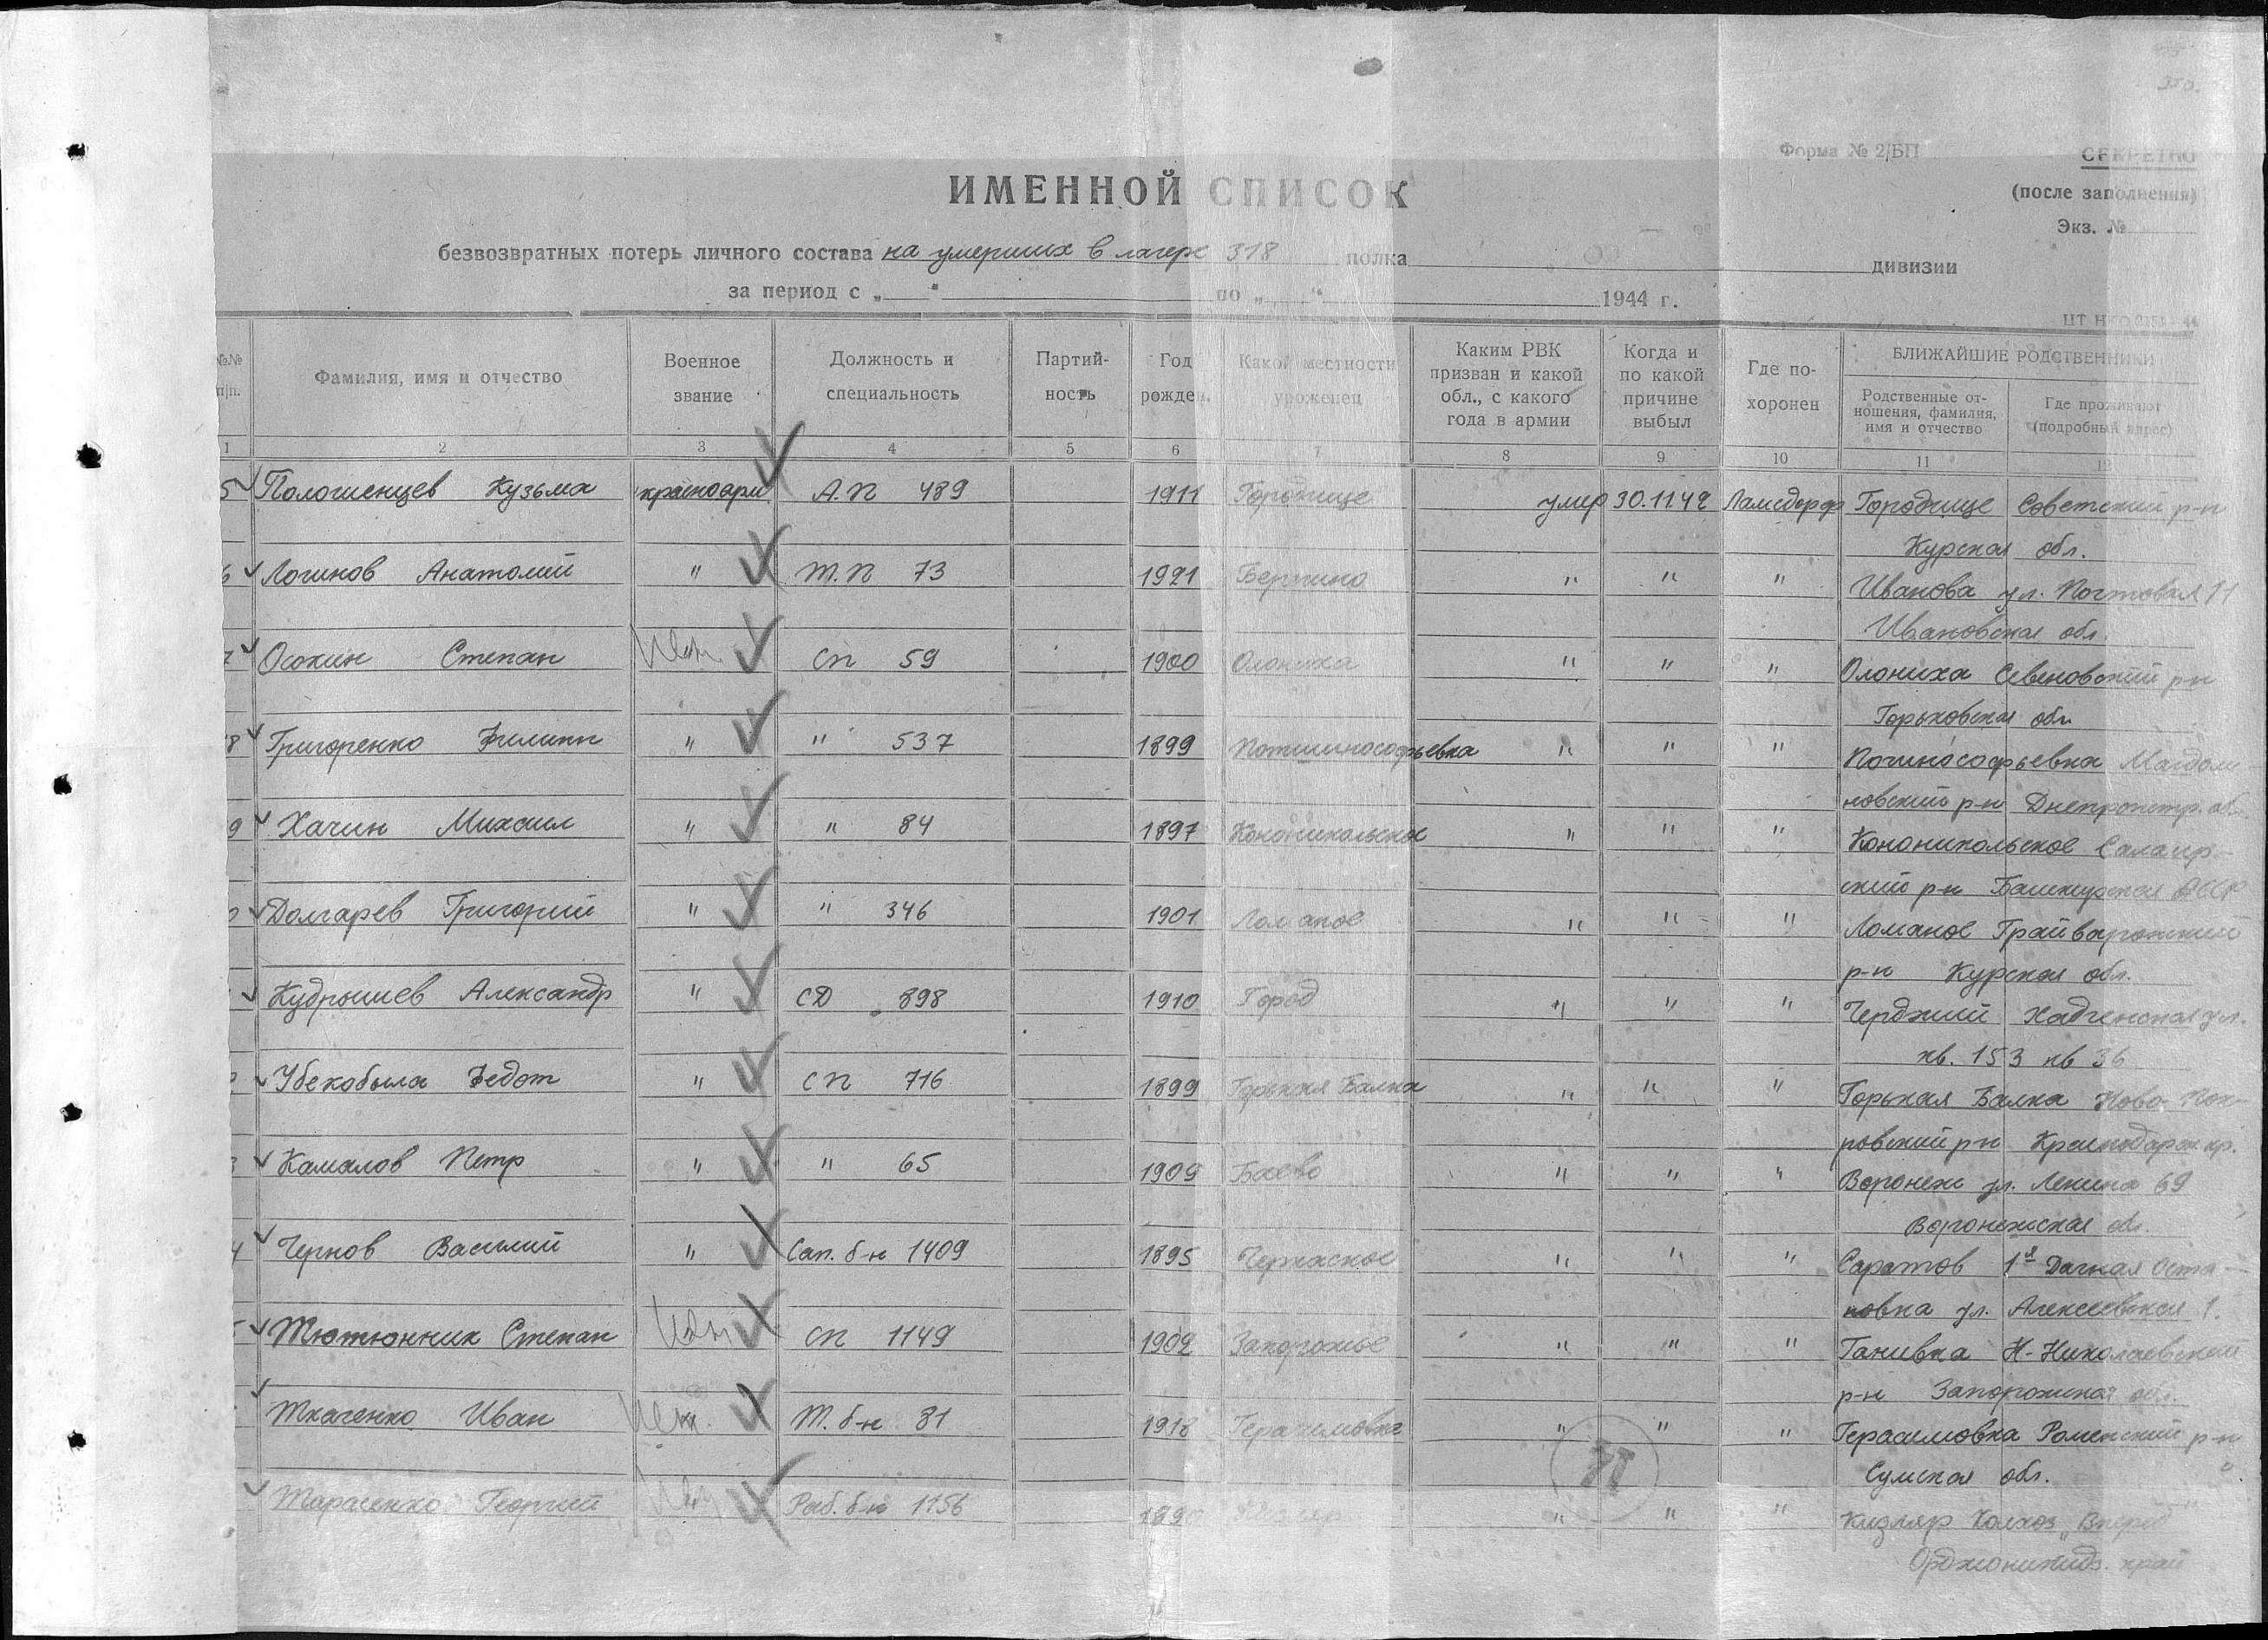 Форма № 2/БП
СЕКРЕТНО
(после заполнения)
Экз. №
ИМЕННОЙ СПИСОК
безвозвратных потерь личного состава на умерших в лагере 318 полка дивизии
за период с „ “ по „ “ 1944 г.
№№ п/п. Фамилия, имя и отчество Военное звание Должность и специальность Партий- ность Год рожден. Какой местности уроженец Каким РВК призван и какой обл., с какого года в армии Когда и по какой причине выбыл Где по- хоронен БЛИЖАЙШИЕ РОДСТВЕННИКИ
Родственные от- ношения, фамилия, имя и отчество Где проживают (подробный адрес)
1 2 3 4 5 6 7 8 9 10 11 12
5 Кузьма красноарм А.П 489 1911 Городище умер 30.11.42 Ламсдорф Городище Советский р-н
Курская обл.
6 Логинов Анатолий " Т.П 73 1921 " " " Иванова ул. Почтовая 11
Ивановская обл.
7 Осокин Степан СП 59 1900 Олониха " " " Олониха р-н
Горьковская обл
8 Григоренко Филипп " " 537 1899 " " " Почино софьевка
новский р-н Днепропетр. об
9 Хачин Михаил " " 84 1897 Кононикольское " " " Кононикольское
ский р-н Башкирская АССР
Долгарев Григорий " " 346 1901 Ломаное " " " Ломаное Грайворонский
р-н Курская обл.
Александр " СД 898 1910 Город " " " ул.
кв. 153 кв 36
Убекобыла Федот " СП 716 1899 Горькая Балка " " " Горькая Балка Ново-Пок-
ровский р-н Краснодарск. кр.
Камалов Петр " " 65 1909 Баево " " " Воронеж ул. Ленина 69
Воронежская об.
4 Чернов Василий " Сап. б-н 1409 1895 Черкаское " " " Саратов 1я Дачная Оста-
новка ул. Алексеевская 1.
5 Тютюнник Степан СП 1149 1902 Запорожье " " " Ганивка Н-Николаевский
р-н Запорожская обл.
Ткаченко Иван Т. б-н 81 1918 " " " Герасимовка Роменский р-н
Сумская обл.
Тарасенко Георгий Раб. б-н 1156 " " " Кизляр Колхоз „Вперед"
Орджоникидз. край